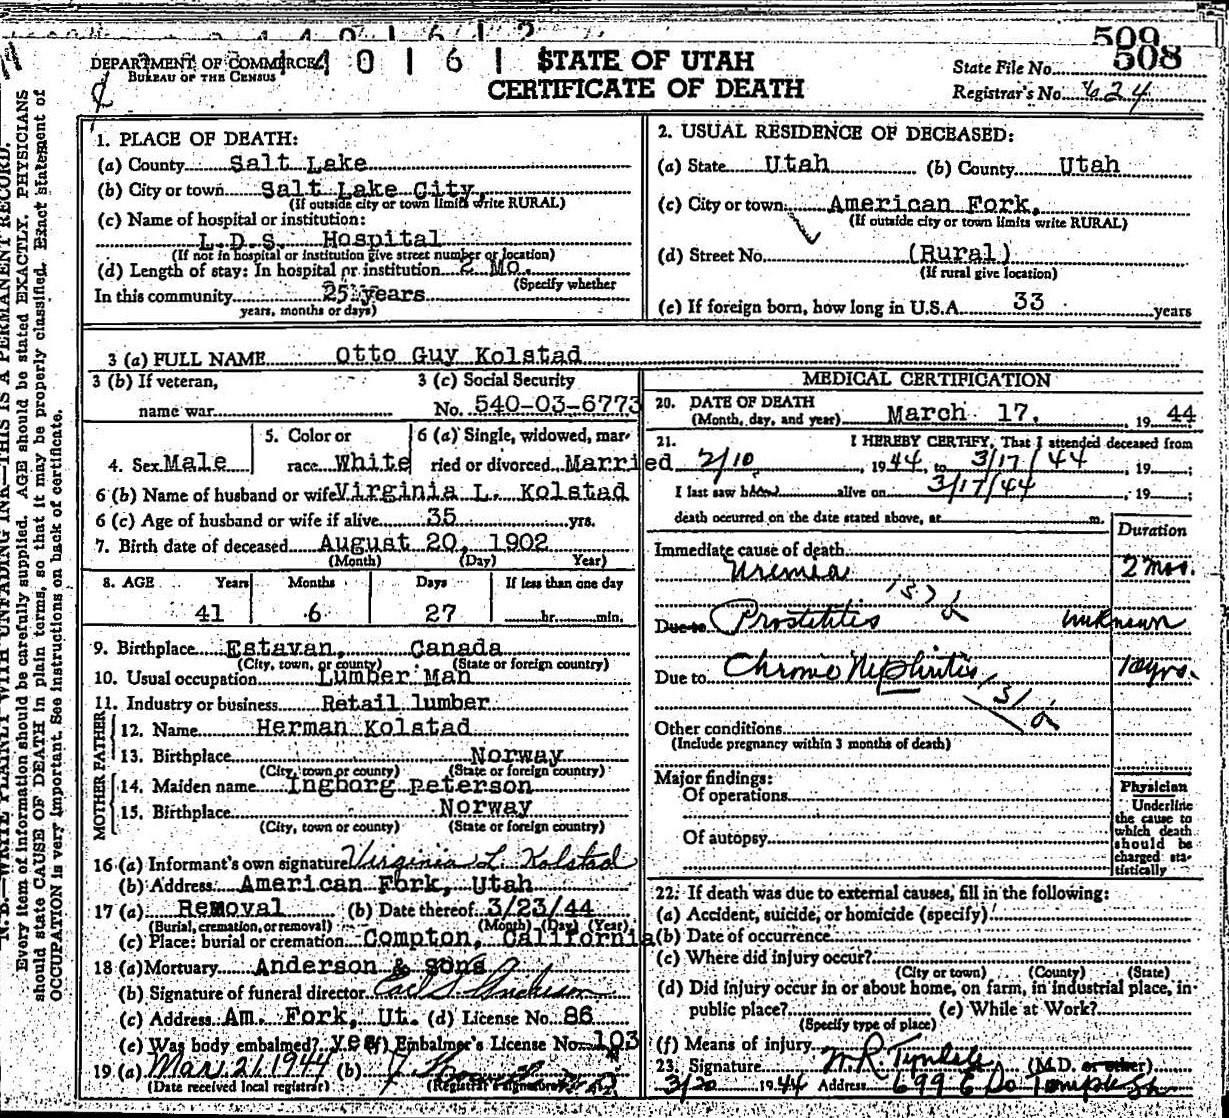 509
508
DEPARTMENT OF COMMERCE
BUREAU OF THE CENSUS
STATE OF UTAH
CERTIFICATE OF DEATH
State File No.
Registrar's No. 624
N. B.—WRITE PLAINLY WITH UNFADING INK—THIS IS A PERMANENT RECORD.
Every item of information should be carefully supplied. AGE should be stated EXACTLY. PHYSICIANS
should state CAUSE OF DEATH in plain terms, so that it may be properly classified. Exact statement of
OCCUPATION is very important. See instructions on back of certificate.
1. PLACE OF DEATH:
(a) County Salt Lake
(b) City or town Salt Lake City,
(If outside city or town limits write RURAL)
(c) Name of hospital or institution:
L.D.S. Hospital
(If not in hospital or institution give street number or location)
(d) Length of stay: In hospital or institution 2 Mo.
(Specify whether
In this community 25 years
years, months or days)
2. USUAL RESIDENCE OF DECEASED:
(a) State Utah (b) County Utah
(c) City or town American Fork,
(If outside city or town limits write RURAL)
(d) Street No. (Rural)
(If rural give location)
(e) If foreign born, how long in U.S.A. 33 years
3 (a) FULL NAME Otto Guy Kolstad
3 (b) If veteran,
name war
3 (c) Social Security
No. 540-03-6773
4. Sex Male
5. Color or
race White
6 (a) Single, widowed, mar-
ried or divorced Married
6 (b) Name of husband or wife Virginia L. Kolstad
6 (c) Age of husband or wife if alive 35 yrs.
7. Birth date of deceased August 20, 1902
(Month) (Day) Year)
8. AGE Years Months Days If less than one day
41 6 27 hr. min.
9. Birthplace Estavan, Canada
(City, town, or county) (State or foreign country)
10. Usual occupation Lumber Man
11. Industry or business Retail lumber
MOTHER FATHER
12. Name Herman Kolstad
13. Birthplace Norway
(City, town or county) (State or foreign country)
14. Maiden name Ingborg Peterson
15. Birthplace Norway
(City, town or county) (State or foreign country)
16 (a) Informant's own signature Virginia L. Kolstad
(b) Address American Fork, Utah
17 (a) Removal (b) Date thereof 3/23/44
(Burial, cremation, or removal) (Month) (Day) (Year)
(c) Place: burial or cremation Compton, California
18 (a) Mortuary Anderson & Sons
(b) Signature of funeral director Earl S. Anderson
(c) Address Am. Fork, Ut. (d) License No. 86
(e) Was body embalmed? yes (f) Embalmer's License No. 103
19 (a) Mar. 21, 1944 (b)
(Date received local registrar) (Registrar's signature)
MEDICAL CERTIFICATION
20. DATE OF DEATH
(Month, day, and year) March 17, 19 44
21. I HEREBY CERTIFY, That I attended deceased from
2/10, 1944, to 3/17/44, 19 ;
I last saw h alive on 3/17/44, 19 ;
death occurred on the date stated above, at m.
Duration
Immediate cause of death
Uremia 2 mos.
137
Due to Prostititis unknown
Due to Chronic Nephritis 10 yrs.
131
Other conditions
(Include pregnancy within 3 months of death)
Major findings:
Of operations
Of autopsy
Physician
Underline
the cause to
which death
should be
charged sta-
tistically
22. If death was due to external causes, fill in the following:
(a) Accident, suicide, or homicide (specify)
(b) Date of occurrence
(c) Where did injury occur?
(City or town) (County) (State)
(d) Did injury occur in or about home, on farm, in industrial place, in
public place? (e) While at Work?
(Specify type of place)
(f) Means of injury
23. Signature W R Tyndale (M.D. or other)
3/20 1944 Address 699 E So Temple